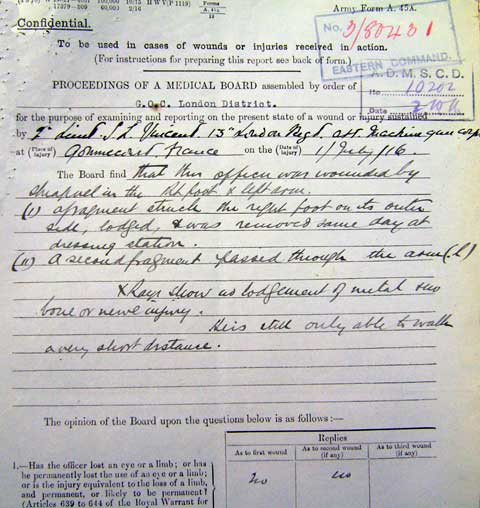 17379—309 60,000 2/16 Forms A. 45A 13
Army Form A. 45A.
Confidential.
No. 3/80431
EASTERN COMMAND.
To be used in cases of wounds or injuries received in action.
(For instructions for preparing this report see back of form.)
A. D. M. S. C. D.
No 10202
Date
PROCEEDINGS OF A MEDICAL BOARD assembled by order of
G.O.C. London District.
for the purpose of examining and reporting on the present state of a wound or injury sustained
by 2nd Lieut. J L Vincent 13th London Regt. att Machine gun corps
at (Place of injury) Gommecourt France on the (Date of injury) 1/July/16
The Board find that this officer was wounded by
shrapnel in the Rt foot & left arm.
(i) a fragment struck the right foot on its outer
side, lodged, & was removed same day at
dressing station.
(ii) A second fragment passed through the arm (L)
X Rays show no lodgement of metal & no
bone or nerve injury.
He is still only able to walk
a very short distance.
The opinion of the Board upon the questions below is as follows:—
Replies
As to first wound As to second wound (if any) As to third wound (if any)
1.—Has the officer lost an eye or a limb; or has
he permanently lost the use of an eye or a limb;
or is the injury equivalent to the loss of a limb,
and permanent, or likely to be permanent?
(Articles 639 to 644 of the Royal Warrant for
no no